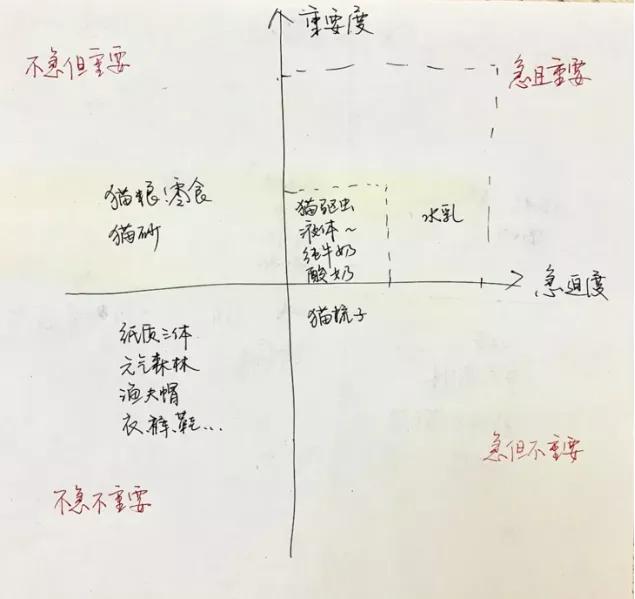 重要度
不急但重要
急且重要
猫粮、零食
猫砂
猫驱虫
液体~
纯牛奶
酸奶
水乳
急迫度
猫梳子
纸质三体
元气森林
渔夫帽
衣.裤.鞋...
急但不重要
不急不重要